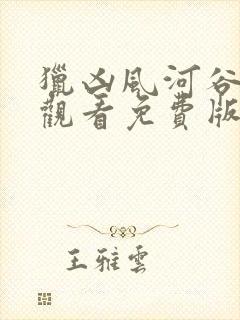 獵凶風河谷
觀看免費版
王雅雲